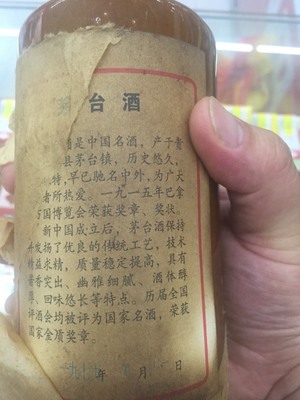 台酒
是中国名酒，产于贵
县茅台镇，历史悠久，
特，早已驰名中外，为广大
者所热爱。一九一五年巴拿
万国博览会荣获奖章、奖状。
新中国成立后，茅台酒保持
并发扬了优良的传统工艺，技术
精益求精，质量稳定提高，具有
酱香突出、幽雅细腻、酒体醇
厚、回味悠长等特点。历届全国
评酒会均被评为国家名酒，荣获
国家金质奖章。
年 月 日